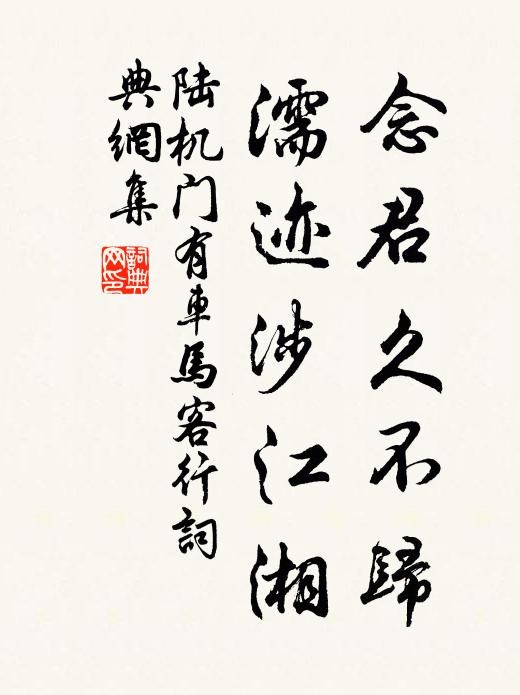 念君久不歸
濡迹涉江湘
陆机门有車馬客行詞
典網集
詞典
网印